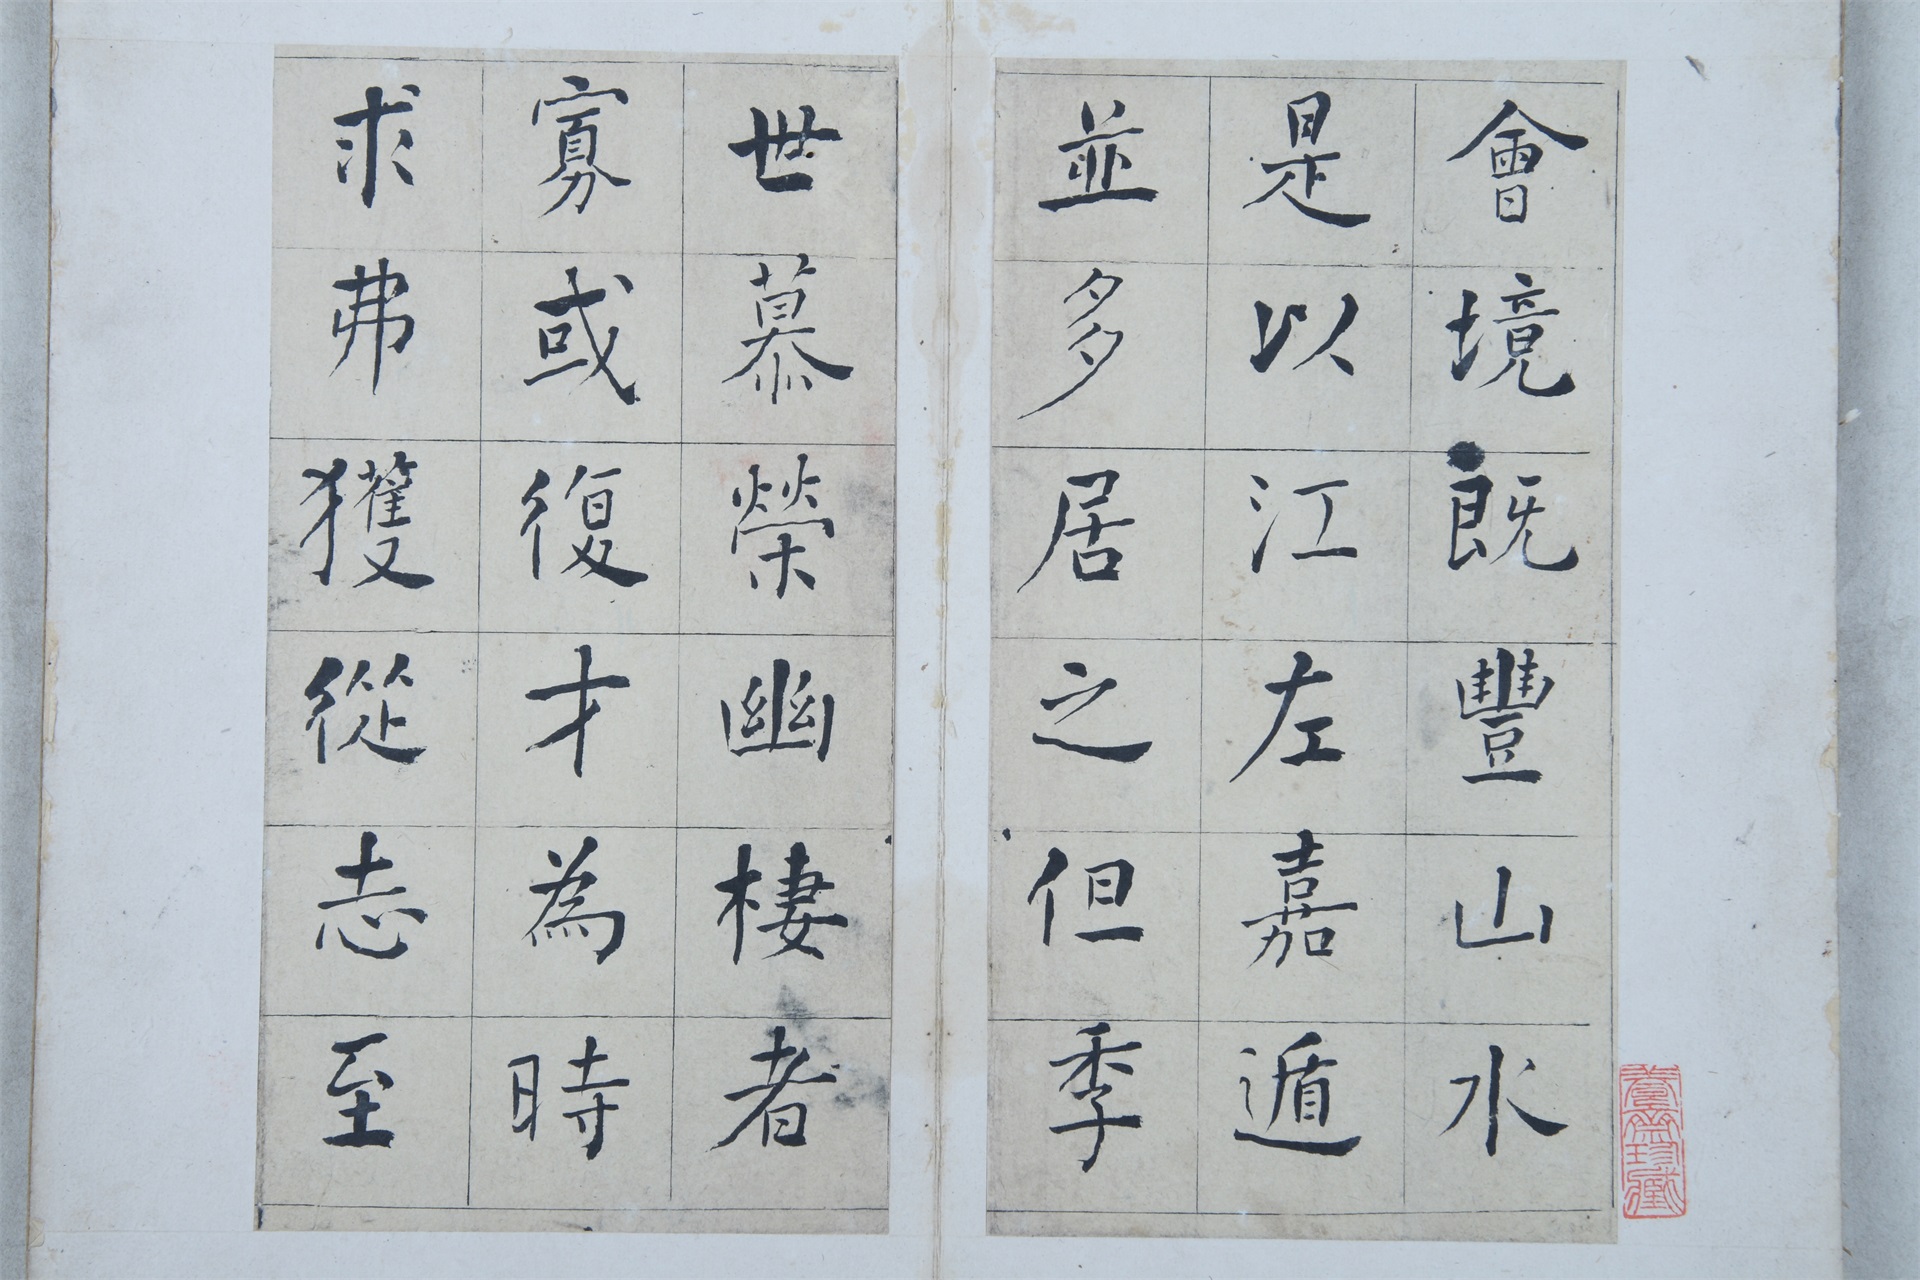 會境既豐山水
是以江左嘉遁
並多居之但季
世慕榮幽棲者
寡或復才為時
求弗獲從志至